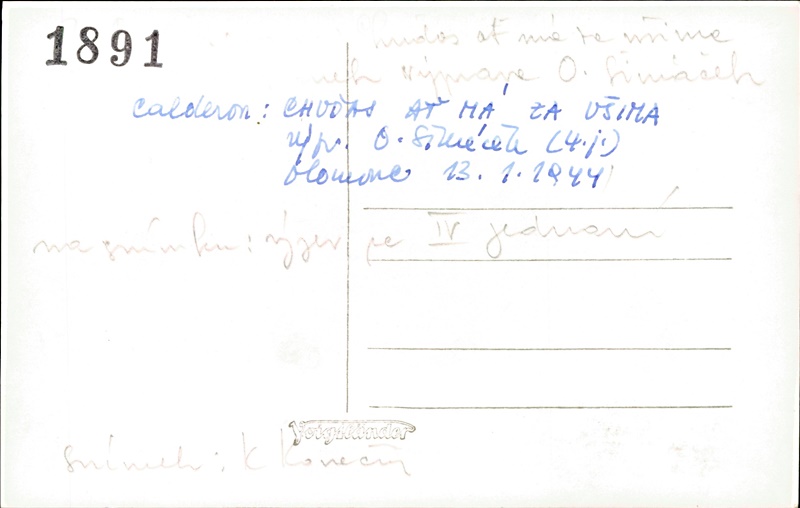 1891
Chudas ať má za ušima
výprava O. Šimáček
Calderon: CHUĎAS AŤ MÁ ZA UŠIMA
výpr. O. Šimáček (4.j.)
Olomouc 13.1.1944
na snímku: výjev ze IV jednání
Voigtländer
Snímek: K Konečný